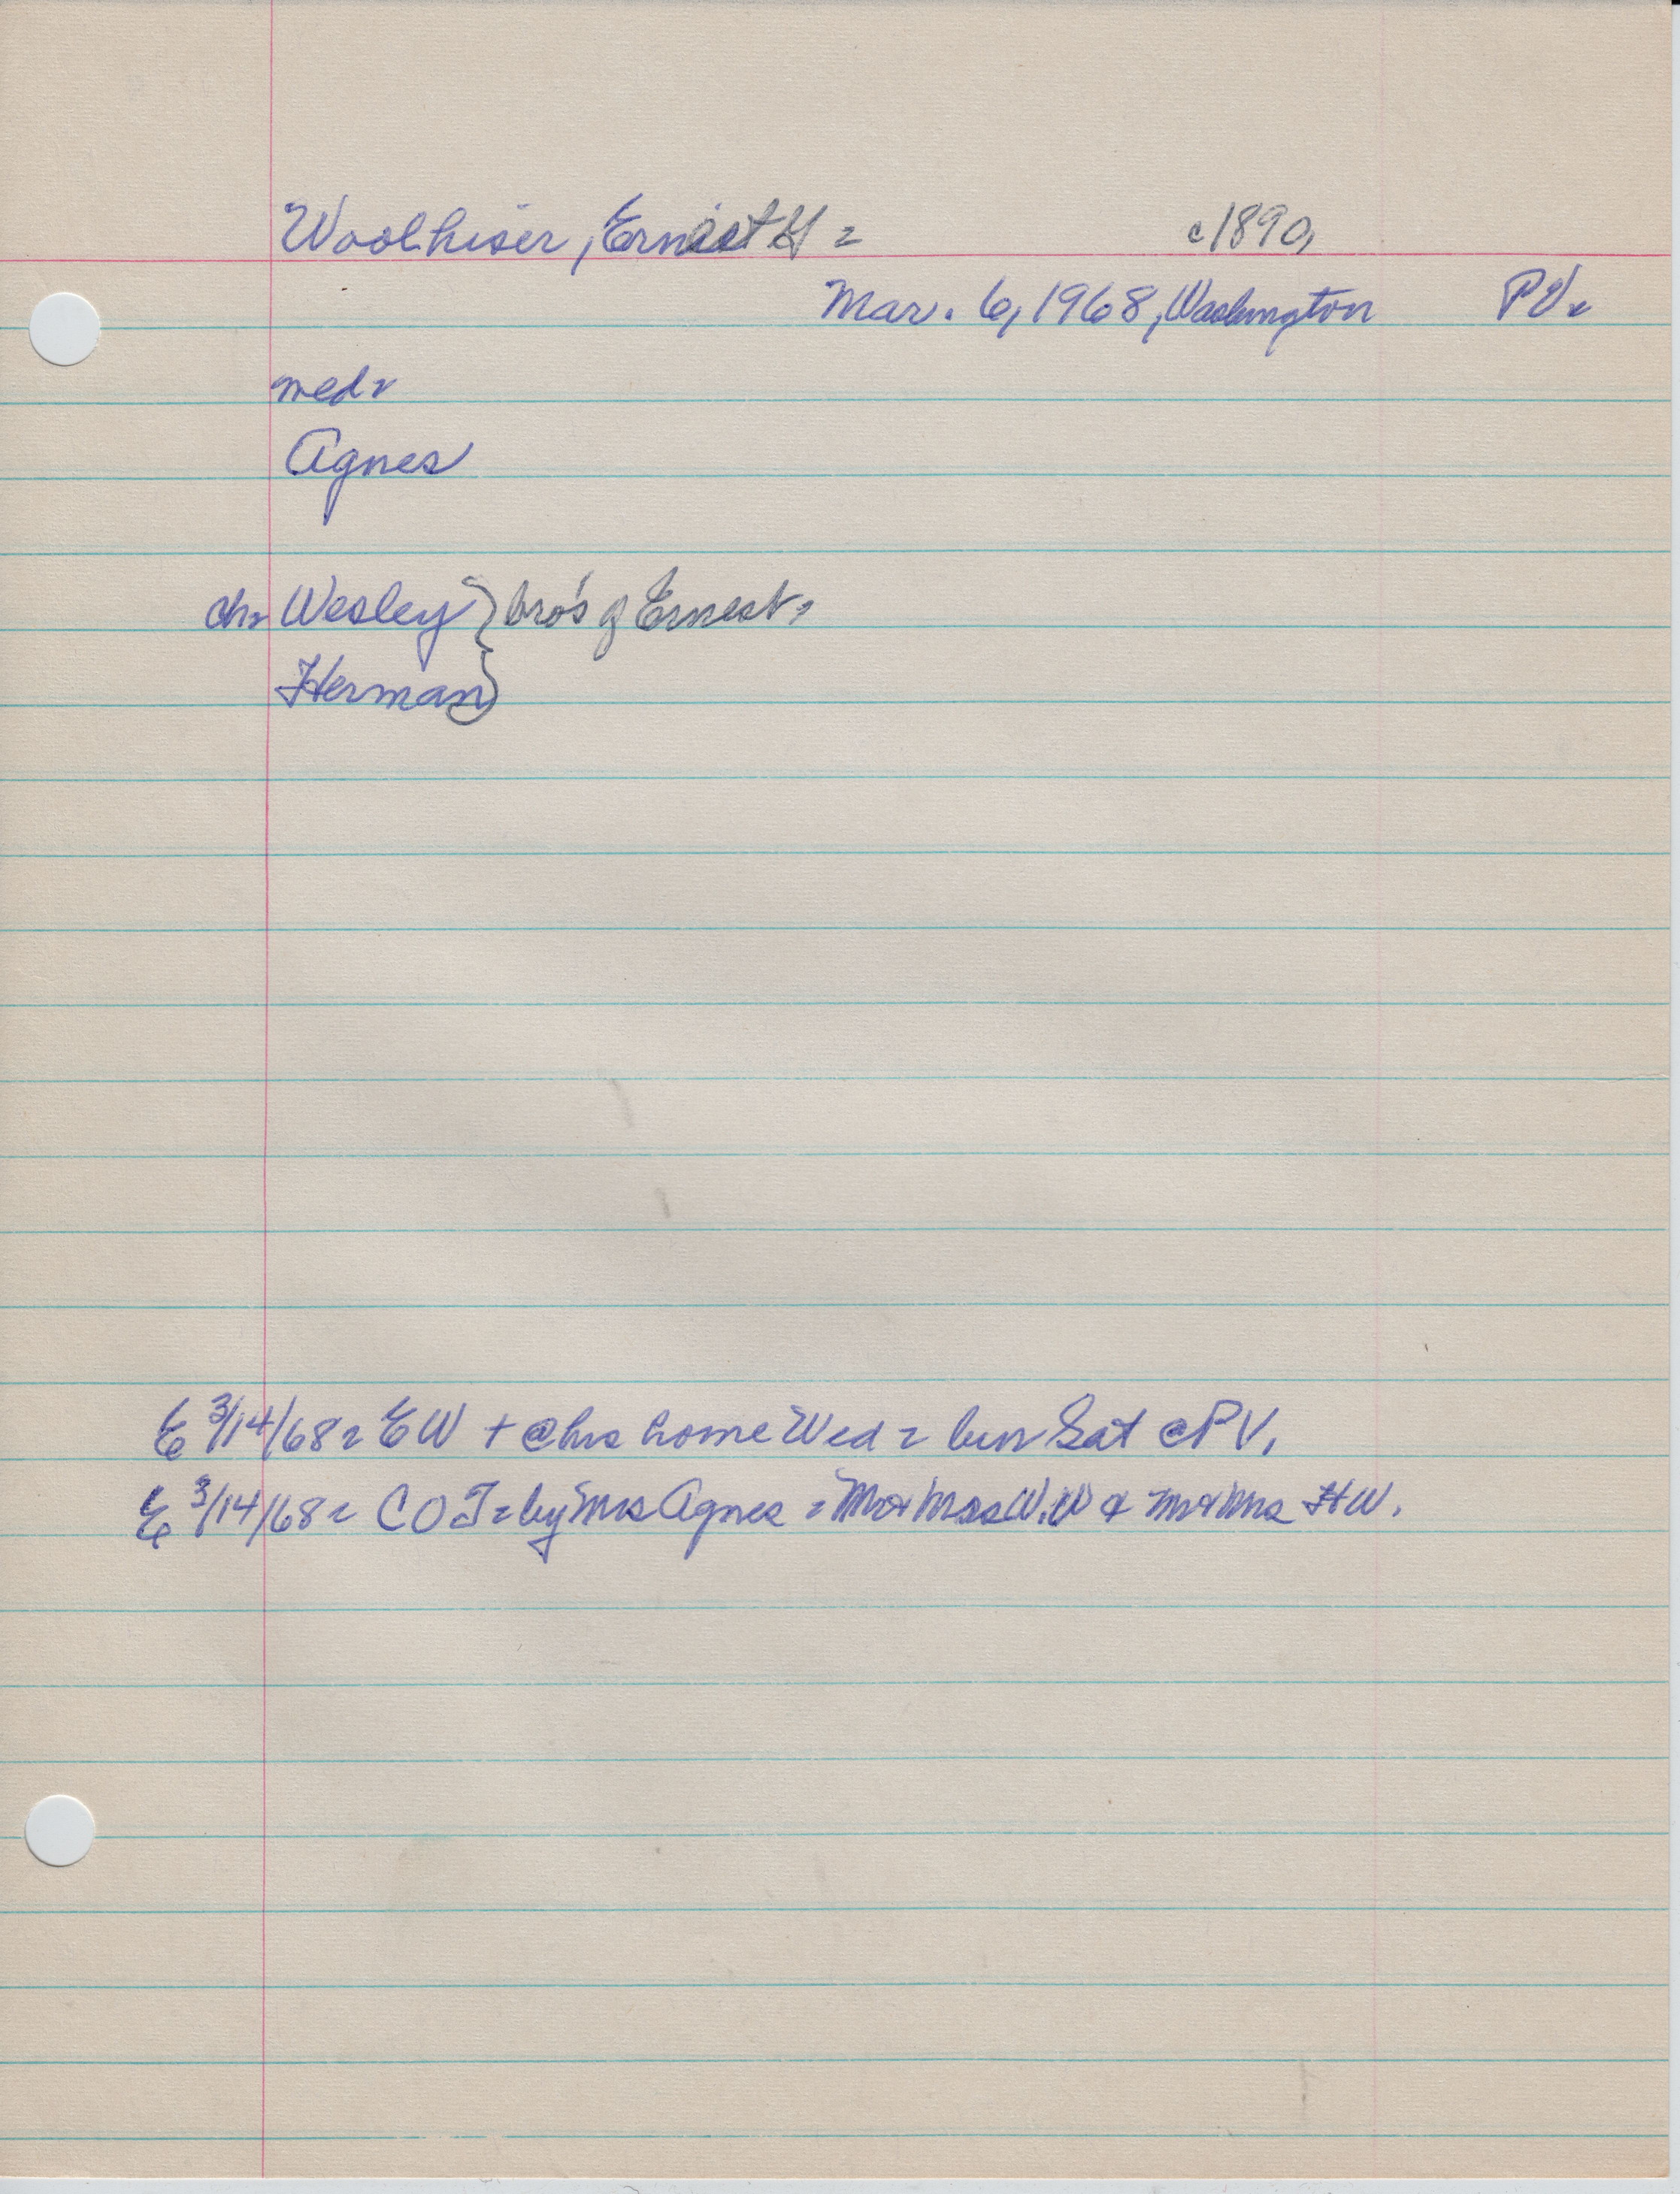 Woolhiser, Ernest H = c1890,
Mar. 6, 1968, Washington PV.
med=
Agnes
ch= Wesley } bro's of Ernest.
Herman
E 3/14/68= EW + @ his home Wed = bur Sat @ PV.
E 3/14/68= COT= by Mrs Agnes = Mr & Mrs W.W & Mr & Mrs HW.